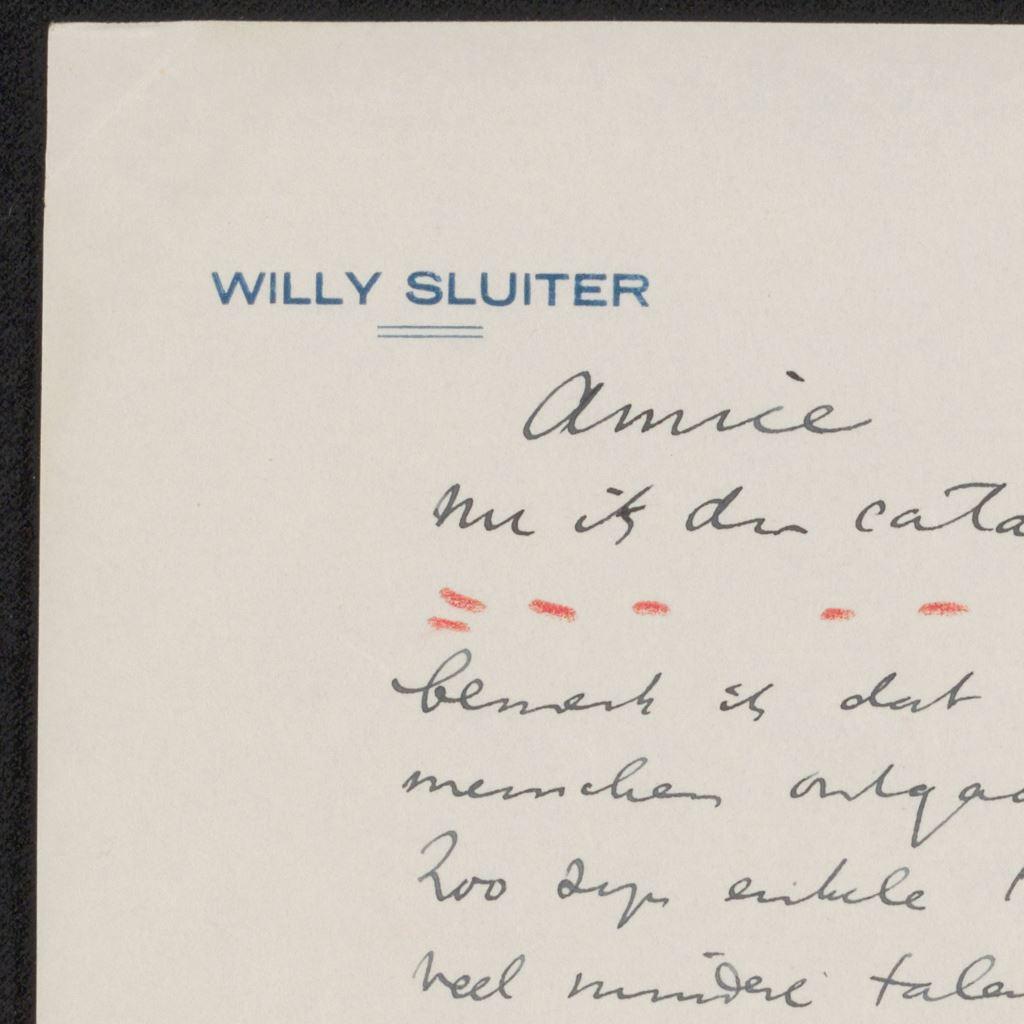 WILLY SLUITER
Amice
nu ik den cata
bemerk ik dat
menschen ontgaa
Zoo zijn enkele
veel mindere talen